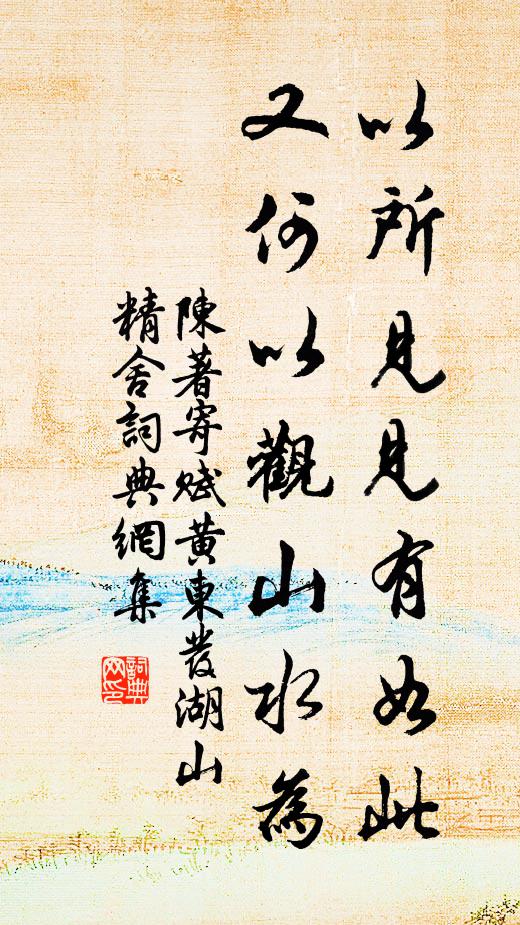 以所見見有如此
又何以觀山水為
陳著寄賦黄東發湖山
精舍詞典網集
詞典
网印